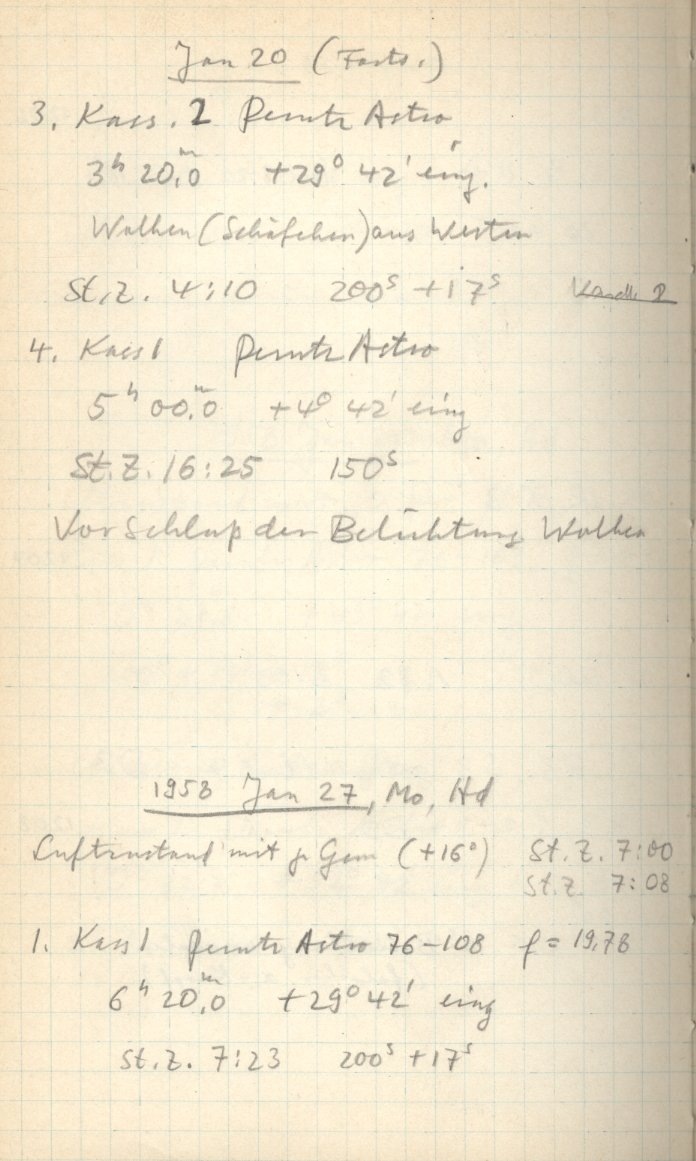 Jan 20 (Forts.)
3. Kass. 2 Perutz Astro
3ʰ 20,ᵐ0 +29° 42' eing.
Wolken (Schäfchen) aus Westen
St.Z. 4:10 200ˢ +17ˢ
4. Kass 1 Perutz Astro
5ʰ 00,ᵐ0 +4° 42' eing
St.Z. 16:25 150ˢ
Vor Schluß der Belichtung Wolken
1958 Jan 27, Mo, Hd
Luftzustand mit γ Gem (+16°) St.Z. 7:00
St.Z. 7:08
1. Kass 1 Perutz Astro 76–108 f = 19,78
6ʰ 20,ᵐ0 +29° 42' eing
St.Z. 7:23 200ˢ +17ˢ